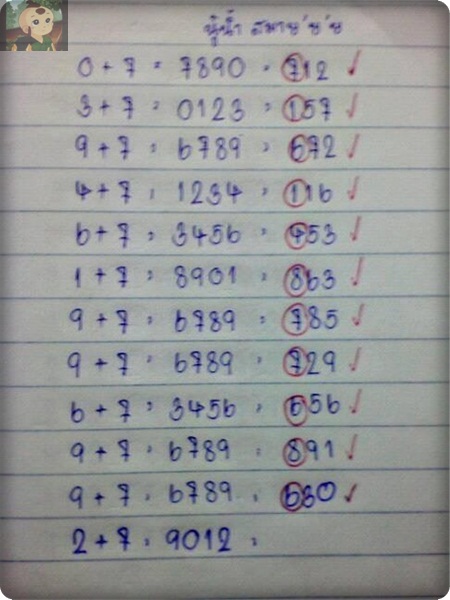 นู๋น้ำ สมาย'ย'ย
0 + 7 = 7890 = 712 ✓
3 + 7 = 0123 = 157 ✓
9 + 7 = 6789 = 672 ✓
4 + 7 = 1234 = 116 ✓
6 + 7 = 3456 = 453 ✓
1 + 7 = 8901 = 863 ✓
9 + 7 = 6789 = 785 ✓
9 + 7 = 6789 = 729 ✓
6 + 7 = 3456 = 656 ✓
9 + 7 = 6789 = 891 ✓
9 + 7 = 6789 = 630 ✓
2 + 7 = 9012 =